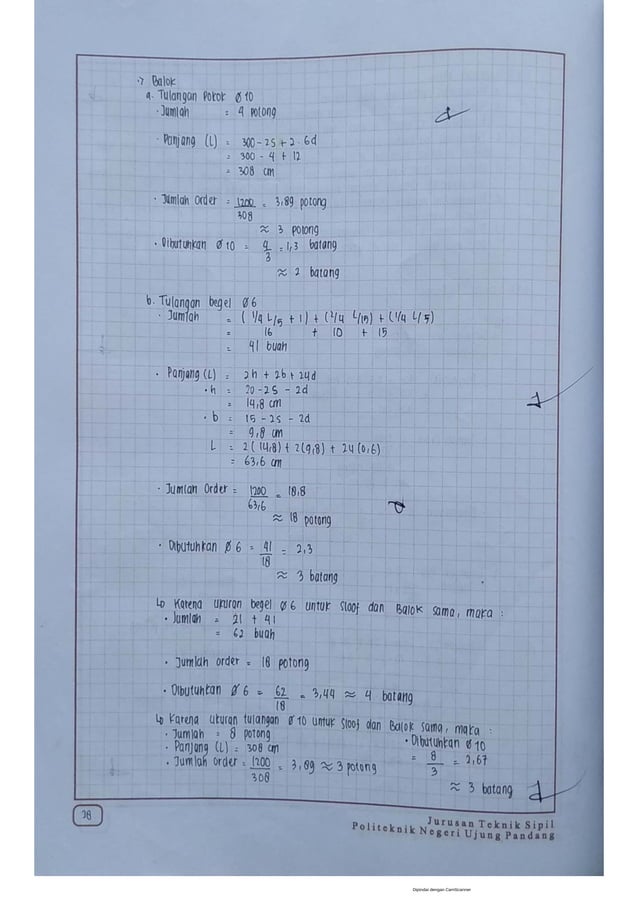 ·> Balok
a. Tulangan Pokok Ø 10
· Jumlah = 4 potong
· Panjang (L) = 300 - 2S + 2 . 6d
= 300 - 4 + 12
= 308 cm
· Jumlah Order = 1200/308 = 3,89 potong
≈ 3 potong
· Dibutuhkan Ø 10 = 4/3 = 1,3 batang
≈ 2 batang
b. Tulangan begel Ø6
· Jumlah = ( 1/4 L/5 + 1 ) + ( 2/4 L/15 ) + ( 1/4 L/5 )
= 16 + 10 + 15
= 41 buah
· Panjang (L) = 2h + 2b + 24d
· h = 20 - 2S - 2d
= 14,8 cm
· b = 15 - 2S - 2d
= 9,8 cm
L = 2 ( 14,8 ) + 2 (9,8) + 24 (0,6)
= 63,6 cm
· Jumlah Order = 1200/63,6 = 18,8
≈ 18 potong
· Dibutuhkan Ø 6 = 41/18 = 2,3
≈ 3 batang
↳ Karena ukuran begel Ø6 untuk Sloof dan Balok sama, maka :
· Jumlah = 21 + 41
= 62 buah
· Jumlah order = 18 potong
· Dibutuhkan Ø 6 = 62/18 = 3,44 ≈ 4 batang
↳ Karena ukuran tulangan Ø 10 untuk Sloof dan Balok sama, maka :
· Jumlah = 8 potong
· Panjang (L) = 308 cm
· Jumlah order = 1200/308 = 3,89 ≈ 3 potong
· Dibutuhkan Ø 10
= 8/3 = 2,67
≈ 3 batang
28
Jurusan Teknik Sipil
Politeknik Negeri Ujung Pandang
Dipindai dengan CamScanner